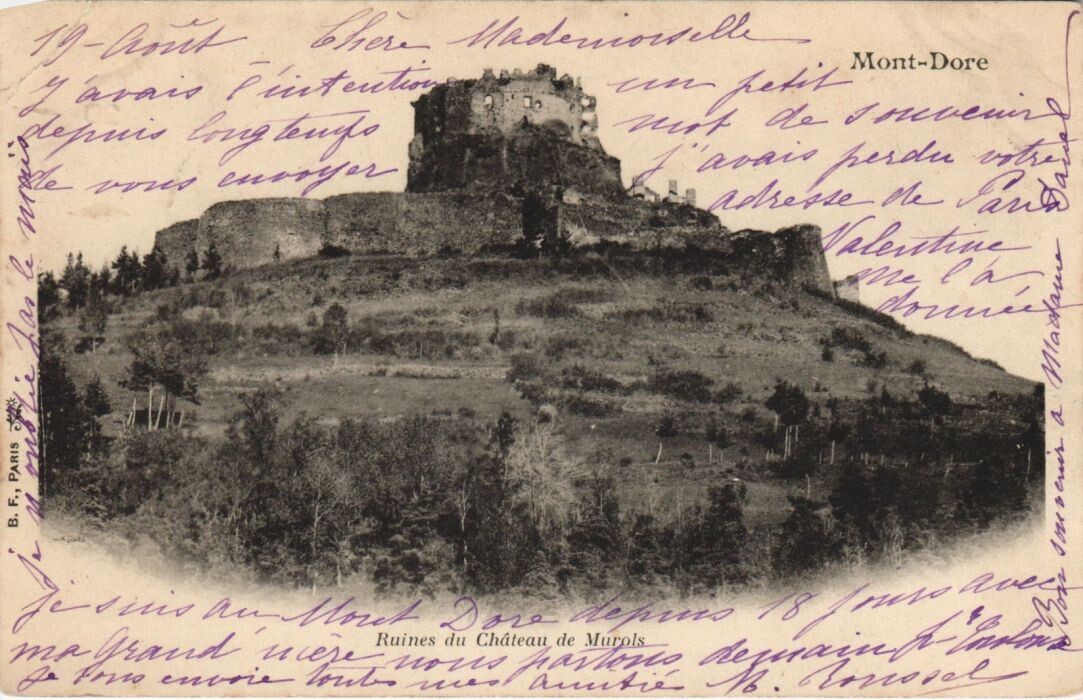 19-Août Chère Mademoiselle
Mont-Dore
J'avais l'intention
depuis longtemps
de vous envoyer
un petit
mot de souvenir
J'avais perdu votre
adresse de Paris
Valentine
me l'a
donnée
Ruines du Château de Murols
Je suis au Mont Dore depuis 18 jours avec
ma Grand mère nous partons demain pr Toulouse
Je vous envoie toutes mes amitiés M. Roussel
Bon souvenir à Madame
je n'oublie pas le mois
B. F., PARIS